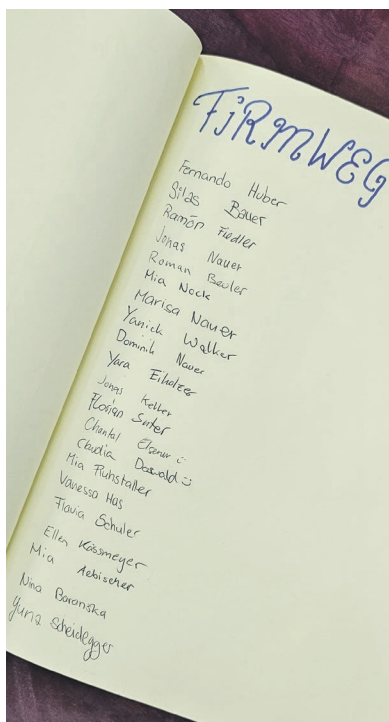 FiRMWEG
Fernando Huber
Silas Bauer
Ramón Fiedler
Jonas Nauer
Roman Beuler
Mia Nock
Marisa Nauer
Yanick Walker
Dominik Nauer
Yara Eiholzer
Jonas Keller
Florian Suter
Chantal Elsener
Claudia Oswald
Mia Ruhstaller
Vanessa Has
Flavia Schuler
Ellen Kässmeyer
Mia Aebischer
Nina Boronska
Yuna Scheidegger